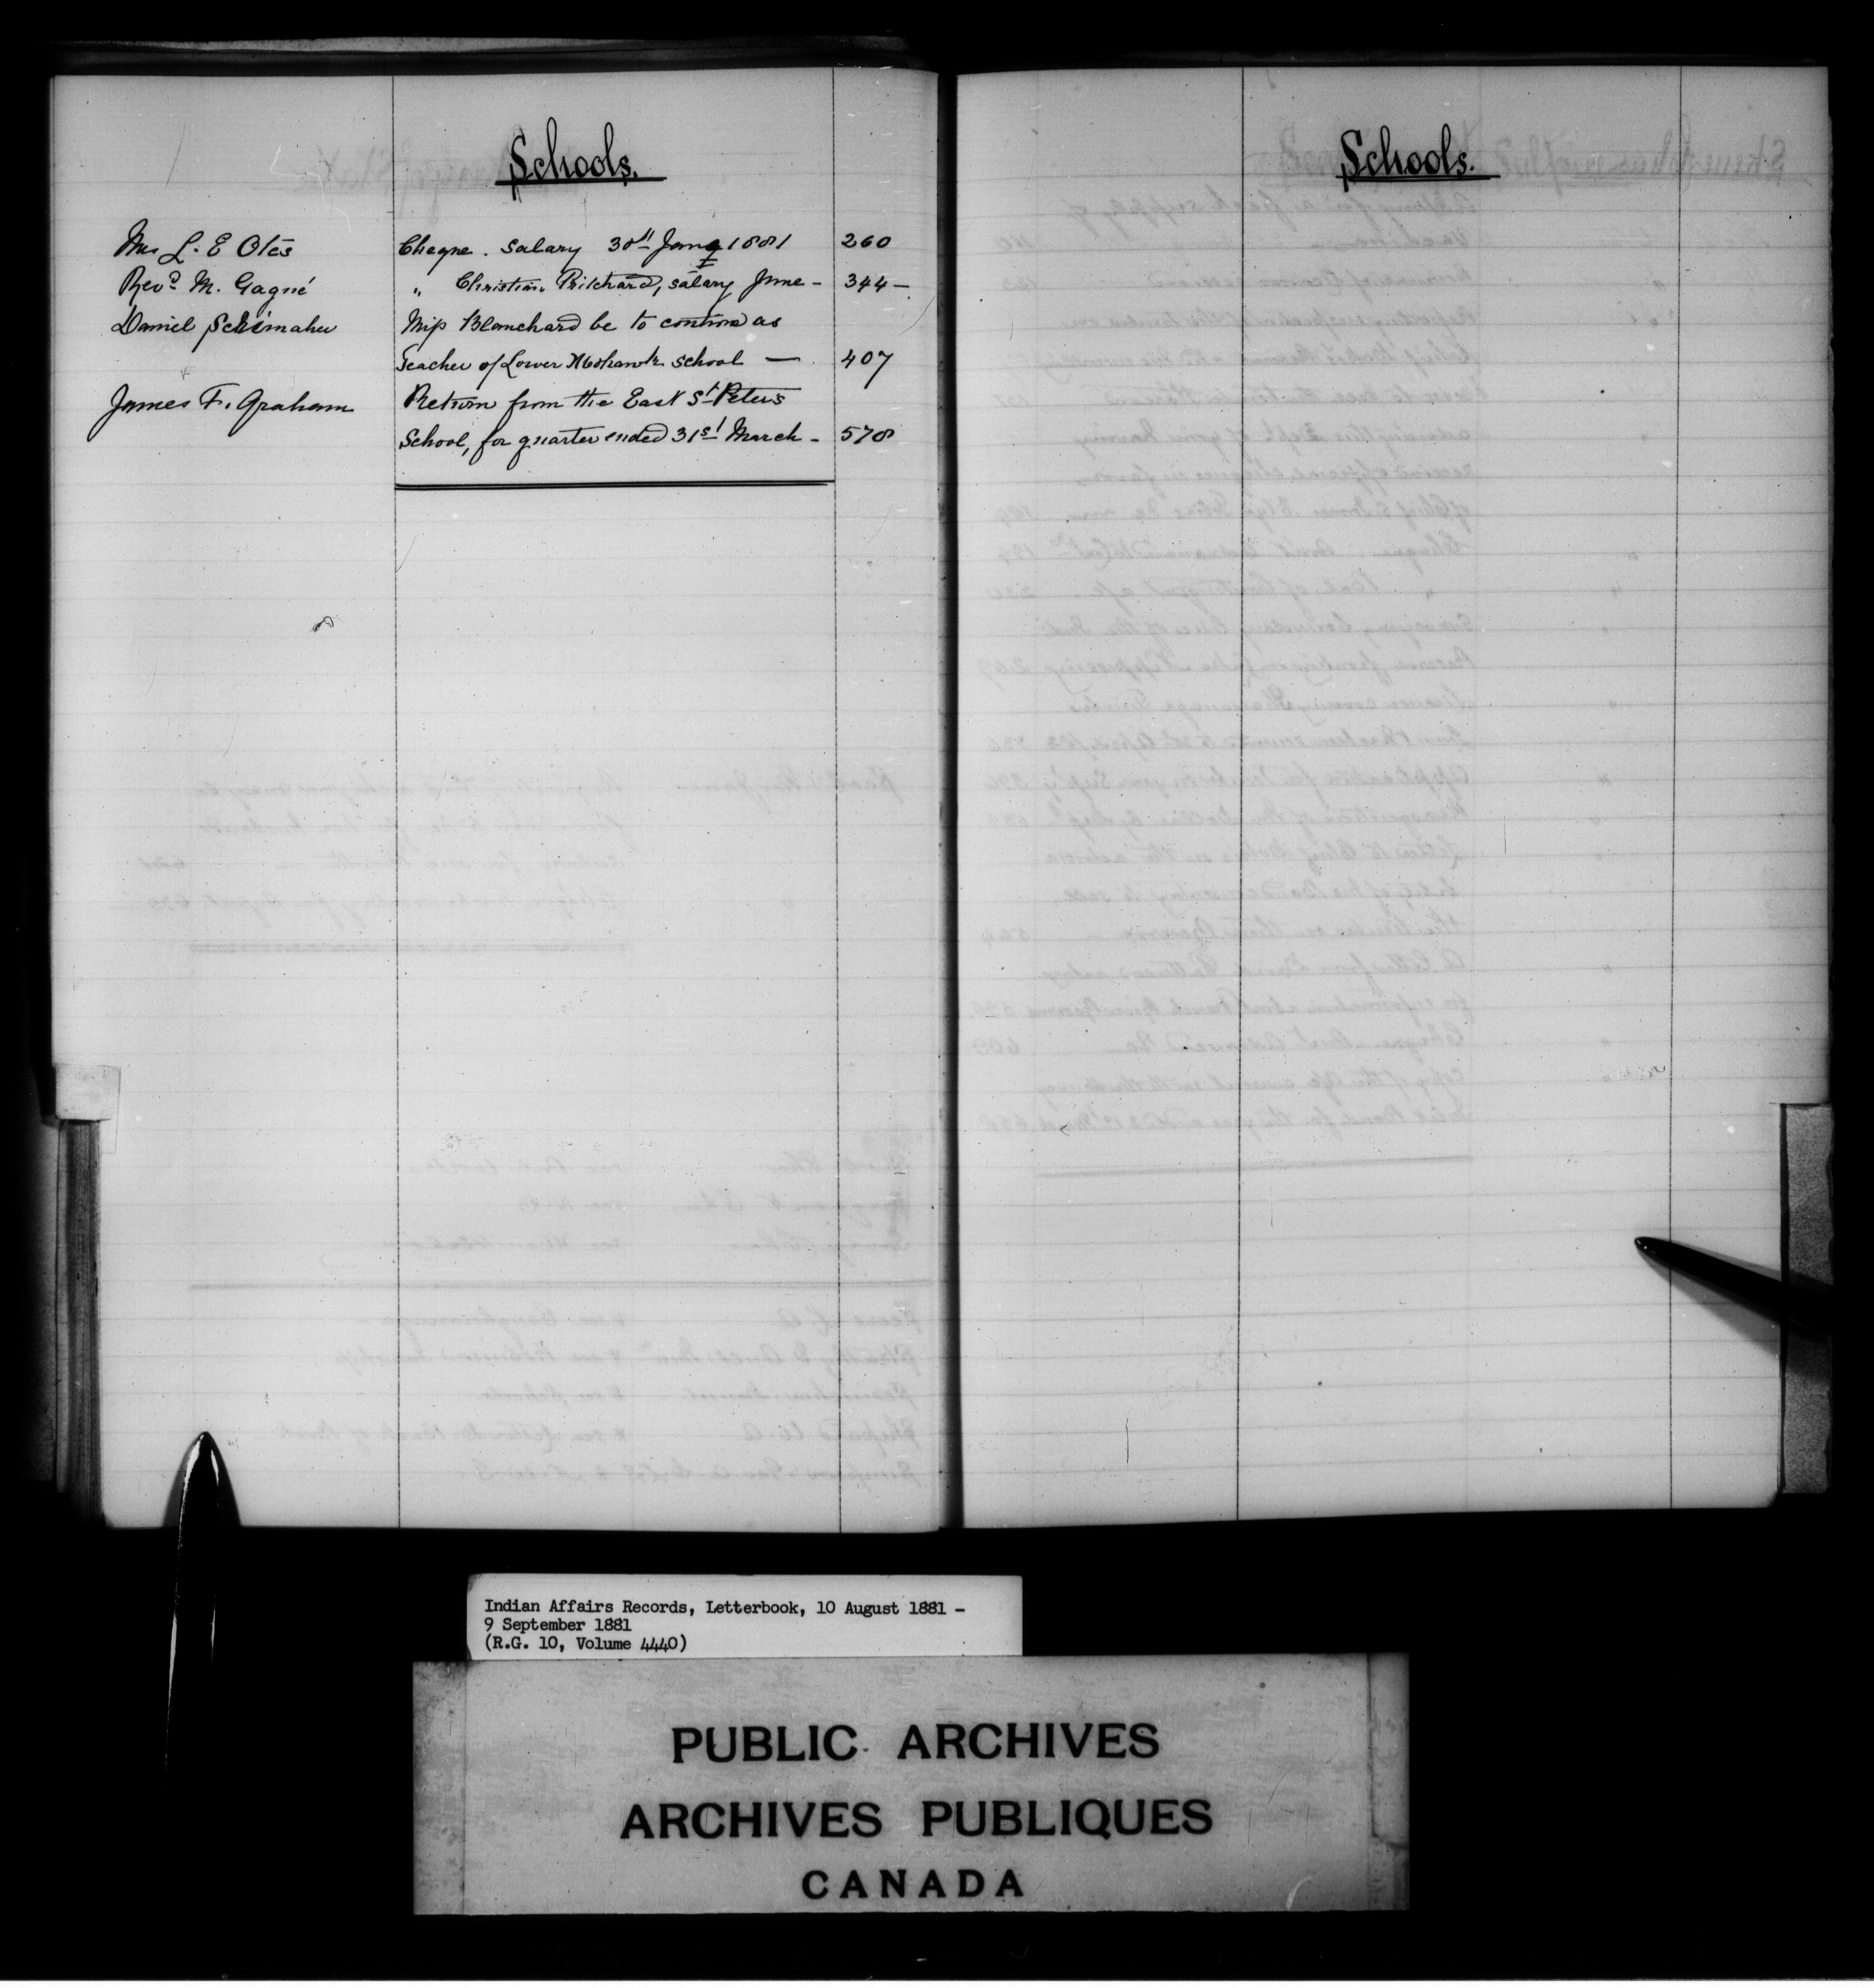 Schools.
Mrs L. E Otes Cheque. Salary 30th June 1881 260
Revd M. Gagné " Christina Pritchard, salary June - 344 -
Daniel Miss Blanchard be to continue as
Teacher of Lower Mohawk school — 407
James F. Graham Return from the East St Peters
School, for quarter ended 31st March - 578
Schools.
Indian Affairs Records, Letterbook, 10 August 1881 -
9 September 1881
(R.G. 10, Volume 4440)
PUBLIC ARCHIVES
ARCHIVES PUBLIQUES
CANADA